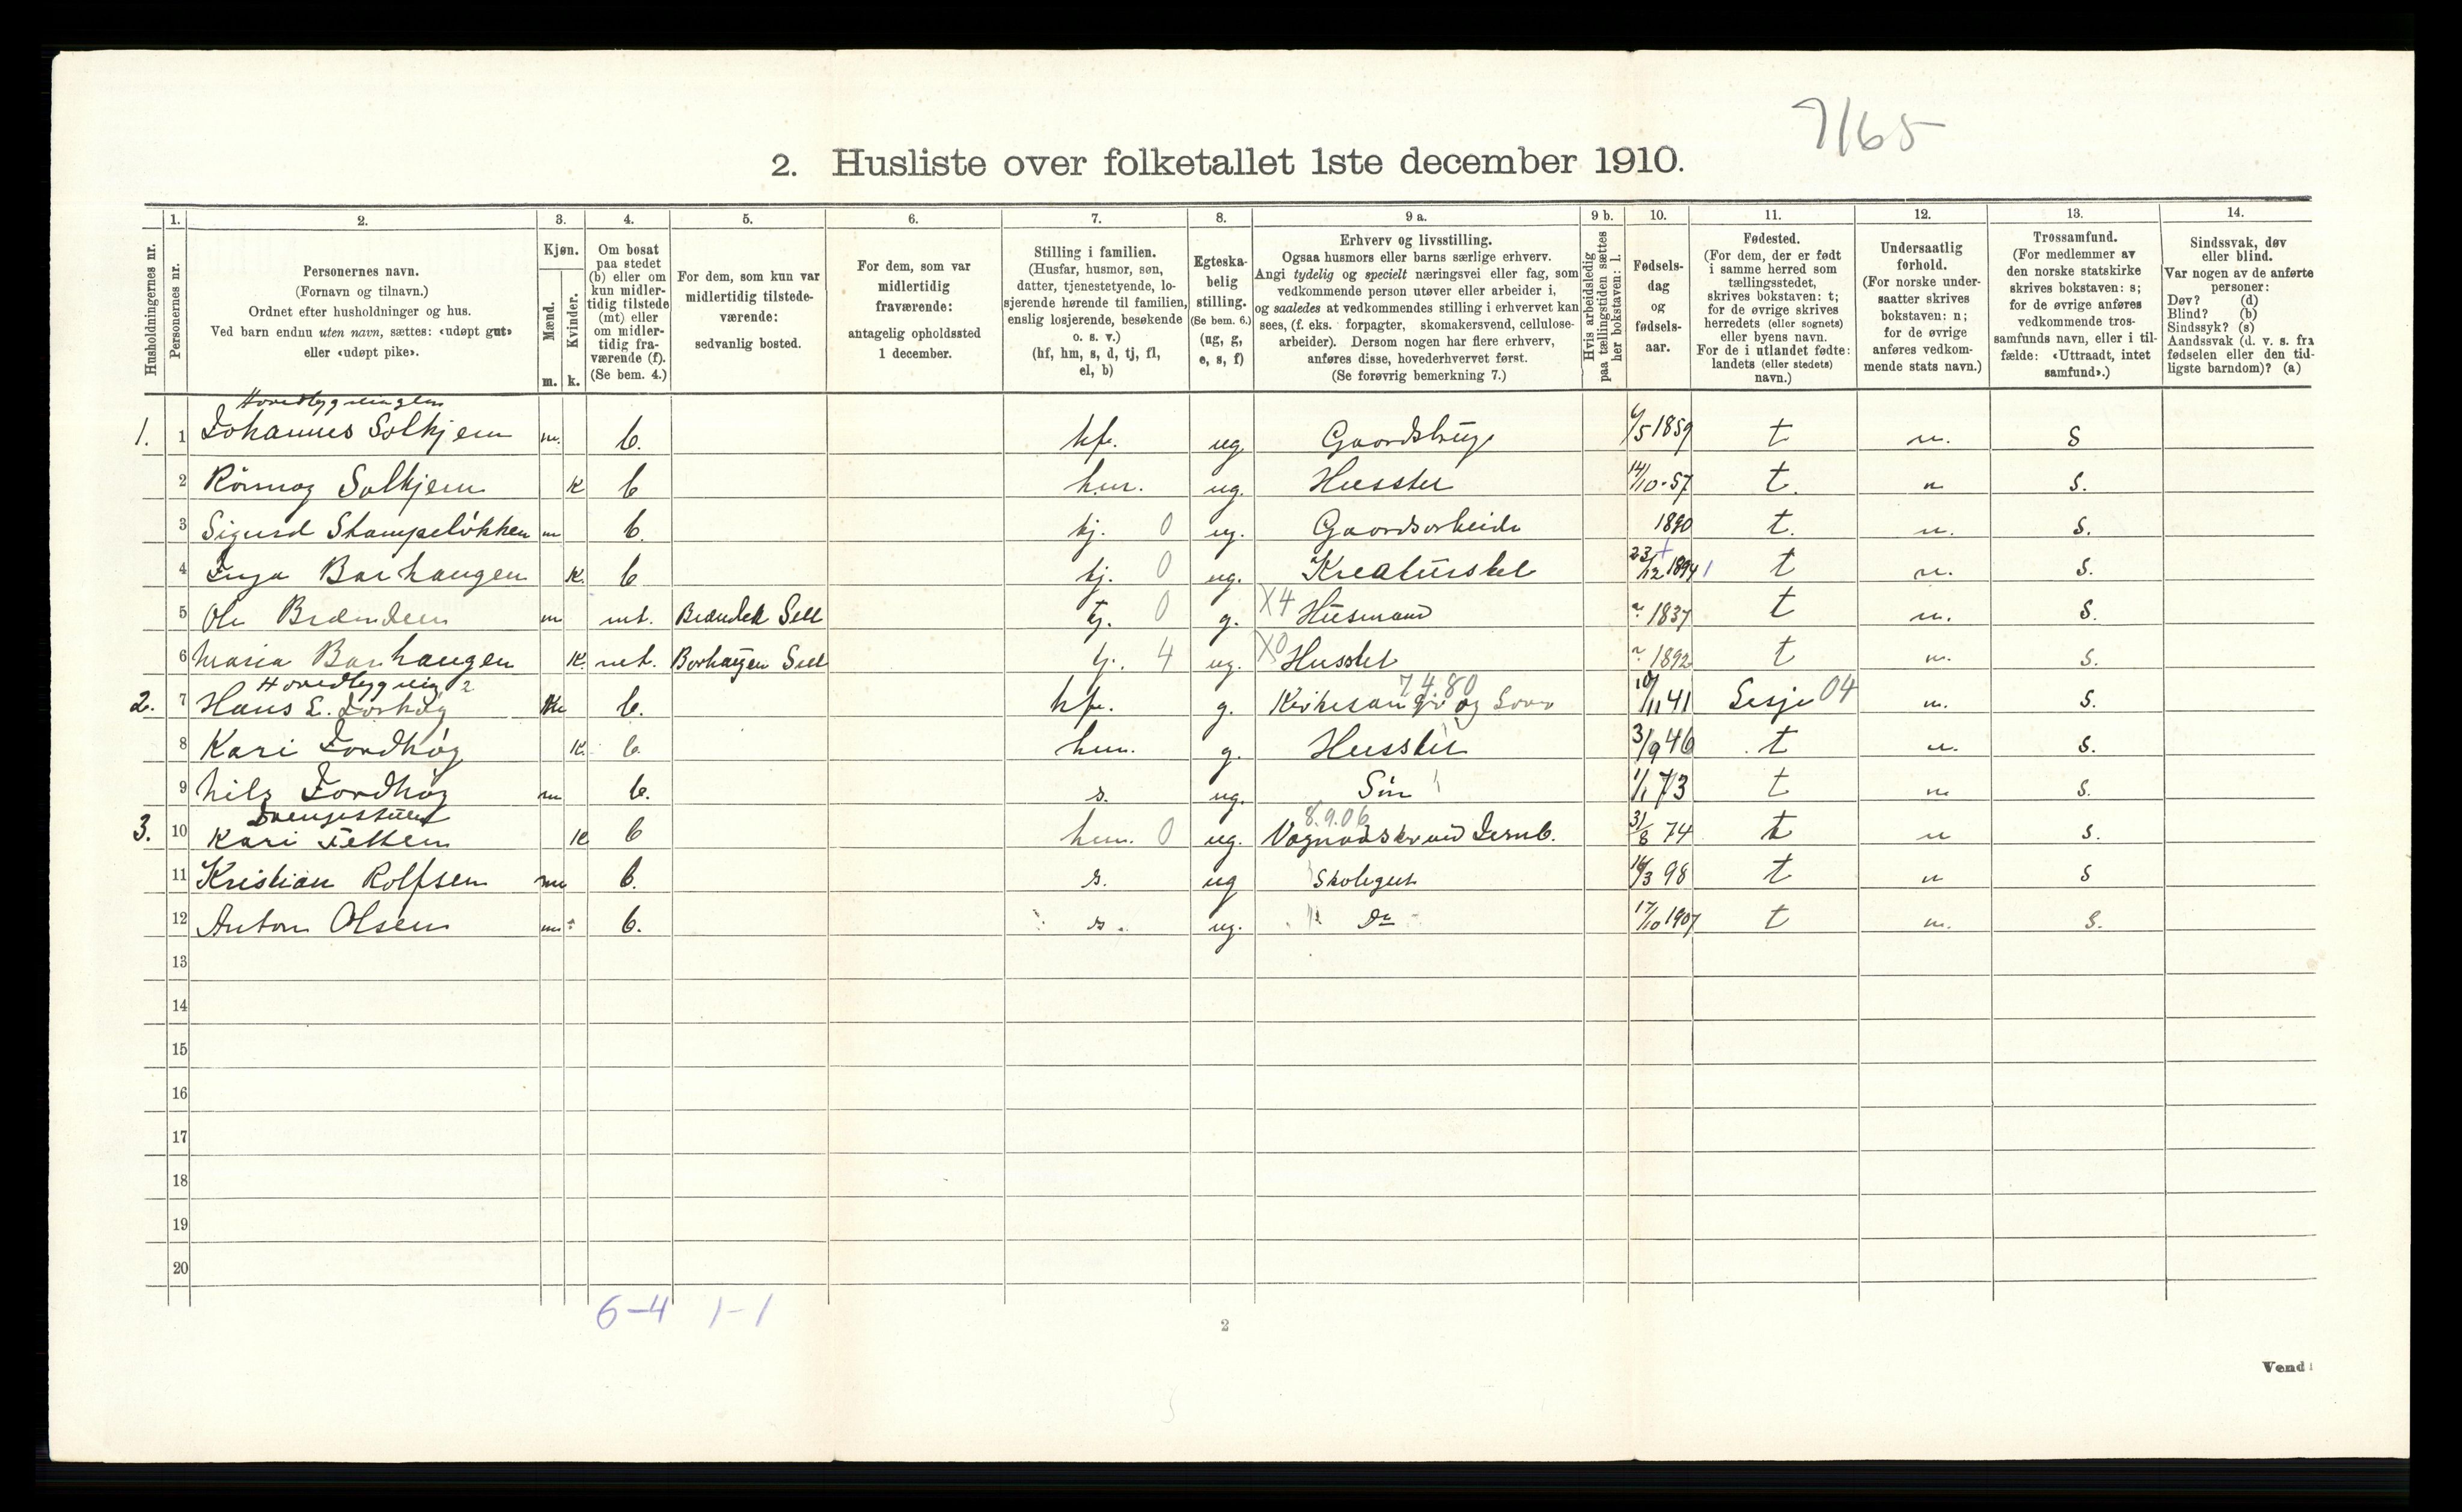 7/65
2. Husliste over folketallet 1ste december 1910.
1. 2. 3. 4. 5. 6. 7. 8. 9 a. 9 b. 10. 11. 12. 13. 14.
Husholdningernes nr.
Personernes nr.
Personernes navn.
(Fornavn og tilnavn.)
Ordnet efter husholdninger og hus.
Ved barn endnu uten navn, sættes: «udøpt gut»
eller «udøpt pike».
Kjøn.
Mænd.
m.
Kvinder.
k.
Om bosat
paa stedet
(b) eller om
kun midler-
tidig tilstede
(mt) eller
om midler-
tidig fra-
værende (f).
(Se bem. 4.)
For dem, som kun var
midlertidig tilstede-
værende:
sedvanlig bosted.
For dem, som var
midlertidig
fraværende:
antagelig opholdssted
1 december.
Stilling i familien.
(Husfar, husmor, søn,
datter, tjenestetyende, lo-
sjerende hørende til familien,
enslig losjerende, besøkende
o. s. v.)
(hf, hm, s, d, tj, fl,
el, b)
Egteska-
belig
stilling.
(Se bem. 6.)
(ug, g,
e, s, f)
Erhverv og livsstilling.
Ogsaa husmors eller barns særlige erhverv.
Angi tydelig og specielt næringsvei eller fag, som
vedkommende person utøver eller arbeider i,
og saaledes at vedkommendes stilling i erhvervet kan
sees, (f. eks. forpagter, skomakersvend, cellulose-
arbeider). Dersom nogen har flere erhverv,
anføres disse, hovederhvervet først.
(Se forøvrig bemerkning 7.)
Hvis arbeidsledig
paa tællingstiden sættes
her bokstaven: l.
Fødsels-
dag
og
fødsels-
aar.
Fødested.
(For dem, der er født
i samme herred som
tællingsstedet,
skrives bokstaven: t;
for de øvrige skrives
herredets (eller sognets)
eller byens navn.
For de i utlandet fødte:
landets (eller stedets)
navn.)
Undersaatlig
forhold.
(For norske under-
saatter skrives
bokstaven: n;
for de øvrige
anføres vedkom-
mende stats navn.)
Trossamfund.
(For medlemmer av
den norske statskirke
skrives bokstaven: s;
for de øvrige anføres
vedkommende tros-
samfunds navn, eller i til-
fælde: «Uttraadt, intet
samfund».)
Sindssvak, døv
eller blind.
Var nogen av de anførte
personer:
Døv? (d)
Blind? (b)
Sindssyk? (s)
Aandssvak (d. v. s. fra
fødselen eller den tid-
ligste barndom)? (a)
Hovedbygningen
1. 1 Johannes Solhjem m. b. hf. ug Gaardsbrug 6/5 1859 t n. s
2 Rönnog Solhjem k b hm. ug. Husstel 14/10-57 t. n s.
3 Sigurd Stampeløkken m b. tj. 0 ug. Gaardsarbeide 1890 t. n. s.
4 Inga Barhaugen k. b tj. 0 ug. Kreaturstel 23/12 1894 t n. s.
5 Ole Brænden m mt. Brænden Sell tj. 0 g. X4 Husmand 1837 t n. s.
6 Maria Barhaugen k. mt. Barhaugen Sell tj. 4 ug. X0 Husstel 1892 t n. s.
Hovedbygning 2
2. 7 Hans L. m b. hf. g. Kirkesanger og 7.4.80 10/11 41 Lesje 04 n. s.
8 Kari Fordhøg k. b. hm. g. Husstel 3/9 46 t n. s.
9 Nils Fordhøg m b. s. ug. Søn 1/1 73 t n s.
3. 10 Kari k b hm. 0 ug. 8.9.06 Vognvadsker ved Jernb. 31/8 74 t n s.
11 Kristian Rolfsen m b. s. ug Skolegut 16/3 98 t n s
12 Anton Olsen m b. s. ug. Do 17/10 1907 t n. s.
13
14
15
16
17
18
19
20
6-4 1-1
2
Vend!